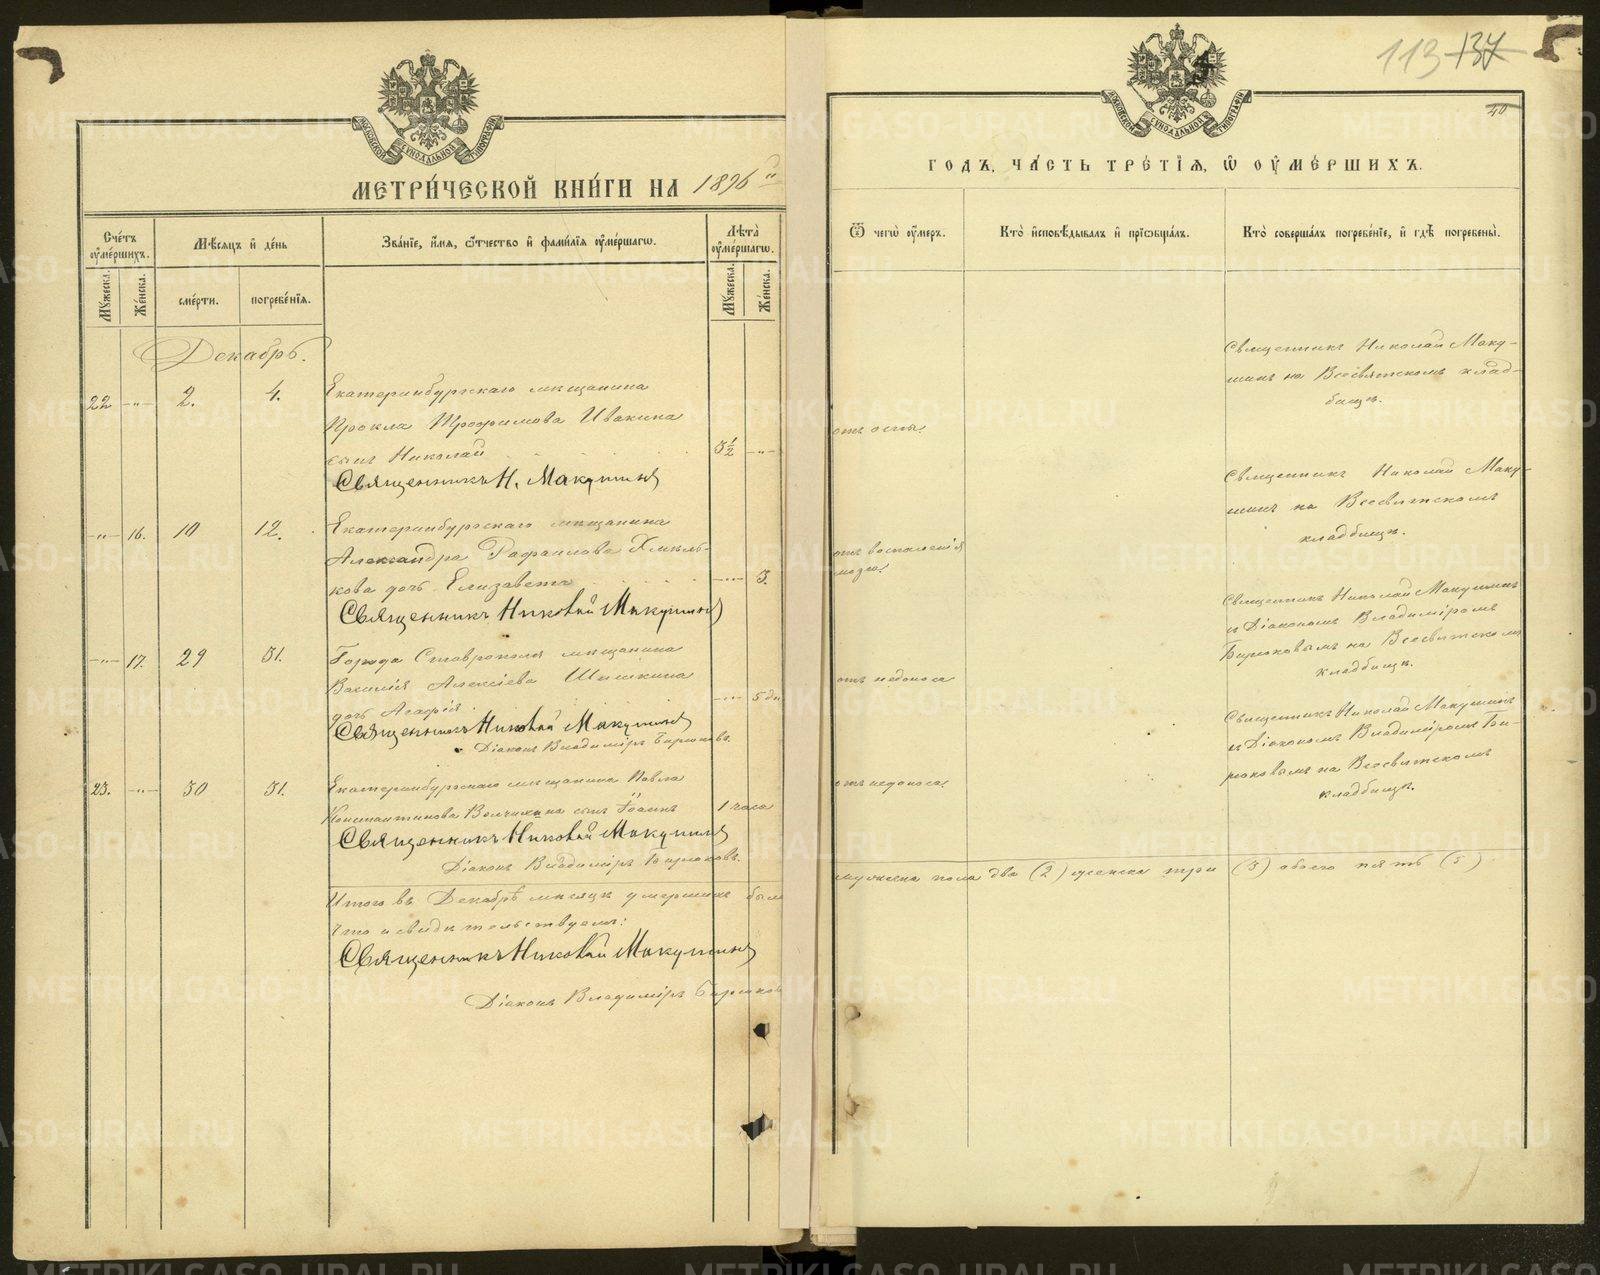 МОСКОВСКОЙ СѴНОДАЛЬНОЙ ТИПОГРАФІИ
МЕТРИ́ЧЕСКОЙ КНИ́ГИ НА 1896 й
Сче́тъ ᲂу҆ме́ршихъ.
Мꙋ́жеска.
Же́нска.
Мѣ́сяцъ и҆ де́нь
сме́рти.
погребе́нїѧ.
Зва́нїе, и҆́мѧ, ѻ҆́тчество и҆ фами́лїѧ ᲂу҆ме́ршагѡ.
Лѣ́та ᲂу҆ме́ршагѡ.
Мꙋ́жеска.
Же́нска.
Декабрь.
22 -"- 2. 4.
Екатеринбургскаго мѣщанина
Прокла Трофимова Ивакина
сынъ Николай
3½ -"-
Священникъ Н. Макушинъ
-"- 16. 10 12.
Екатеринбургскаго мѣщанина
Александра Рафаилова Хмѣль-
кова дочь Елизавета
-"- 3.
Священникъ Николай Макушинъ
-"- 17. 29 31.
Города Ставрополя мѣщанина
Василія Алексіева Шишкина
дочь Агафія
-"- 5 дн
Священникъ Николай Макушинъ
Діаконъ Владиміръ Бирюковъ.
23. -"- 30 31.
Екатеринбургскаго мѣщанина Павла
Константинова Величкина сынъ Іоаннъ
1 часа
Священникъ Николай Макушинъ
Діаконъ Владиміръ Бирюковъ.
Итого въ Декабрѣ мѣсяцѣ умершихъ было
Что и свидѣтельствуемъ:
Священникъ Николай Макушинъ
Діаконъ Владиміръ Бирюков
113 137
40
МОСКОВСКОЙ СѴНОДАЛЬНОЙ ТИПОГРАФІИ
ГОДЪ, ЧА́СТЬ ТРЕ́ТЇѦ, Ѡ҆ ОУ҆МЕ́РШИХЪ.
Ѿ чегѡ̀ ᲂу҆́меръ.
Кто̀ и҆сповѣ́дывалъ и҆ прїѡбща́лъ.
Кто̀ соверша́лъ погребе́нїе, и҆ гдѣ̀ погребены̀.
отъ оспы.
Священникъ Николай Маку-
шинъ на Всесвятскомъ клад-
бищѣ.
отъ воспаленія
мозга.
Священникъ Николай Маку-
шинъ на Всесвятскомъ
кладбищѣ.
отъ недоноса
Священникъ Николай Макушинъ
съ Діакономъ Владиміромъ
Бирюковымъ на Всесвятскомъ
кладбищѣ.
отъ недоноса.
Священникъ Николай Макушинъ
съ Діакономъ Владиміромъ Би-
рюковымъ на Всесвятскомъ
кладбищѣ.
мужеска пола два (2) женска три (3) обоего пять (5)
METRIKI.GASO-URAL.RU